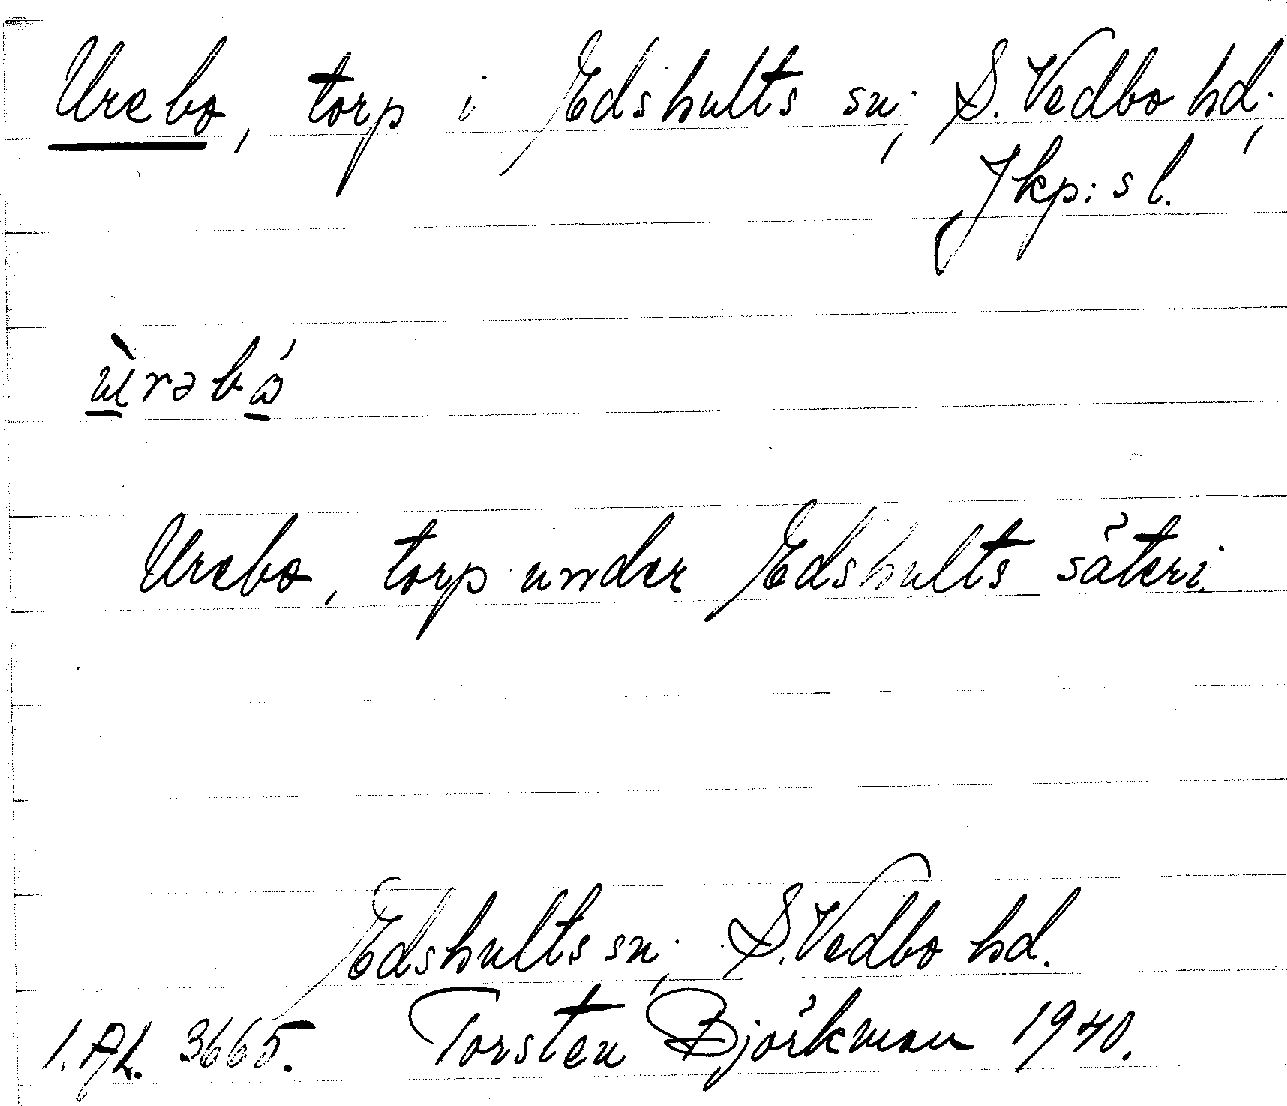 Urebo, torp i Edshults sn, S. Vedbo hd.,
Jkp:s l.
ùrəbá
Urebo, torp under Edshults säteri.
Edshults sn, S. Vedbo hd.
Torsten Björkman 1940.